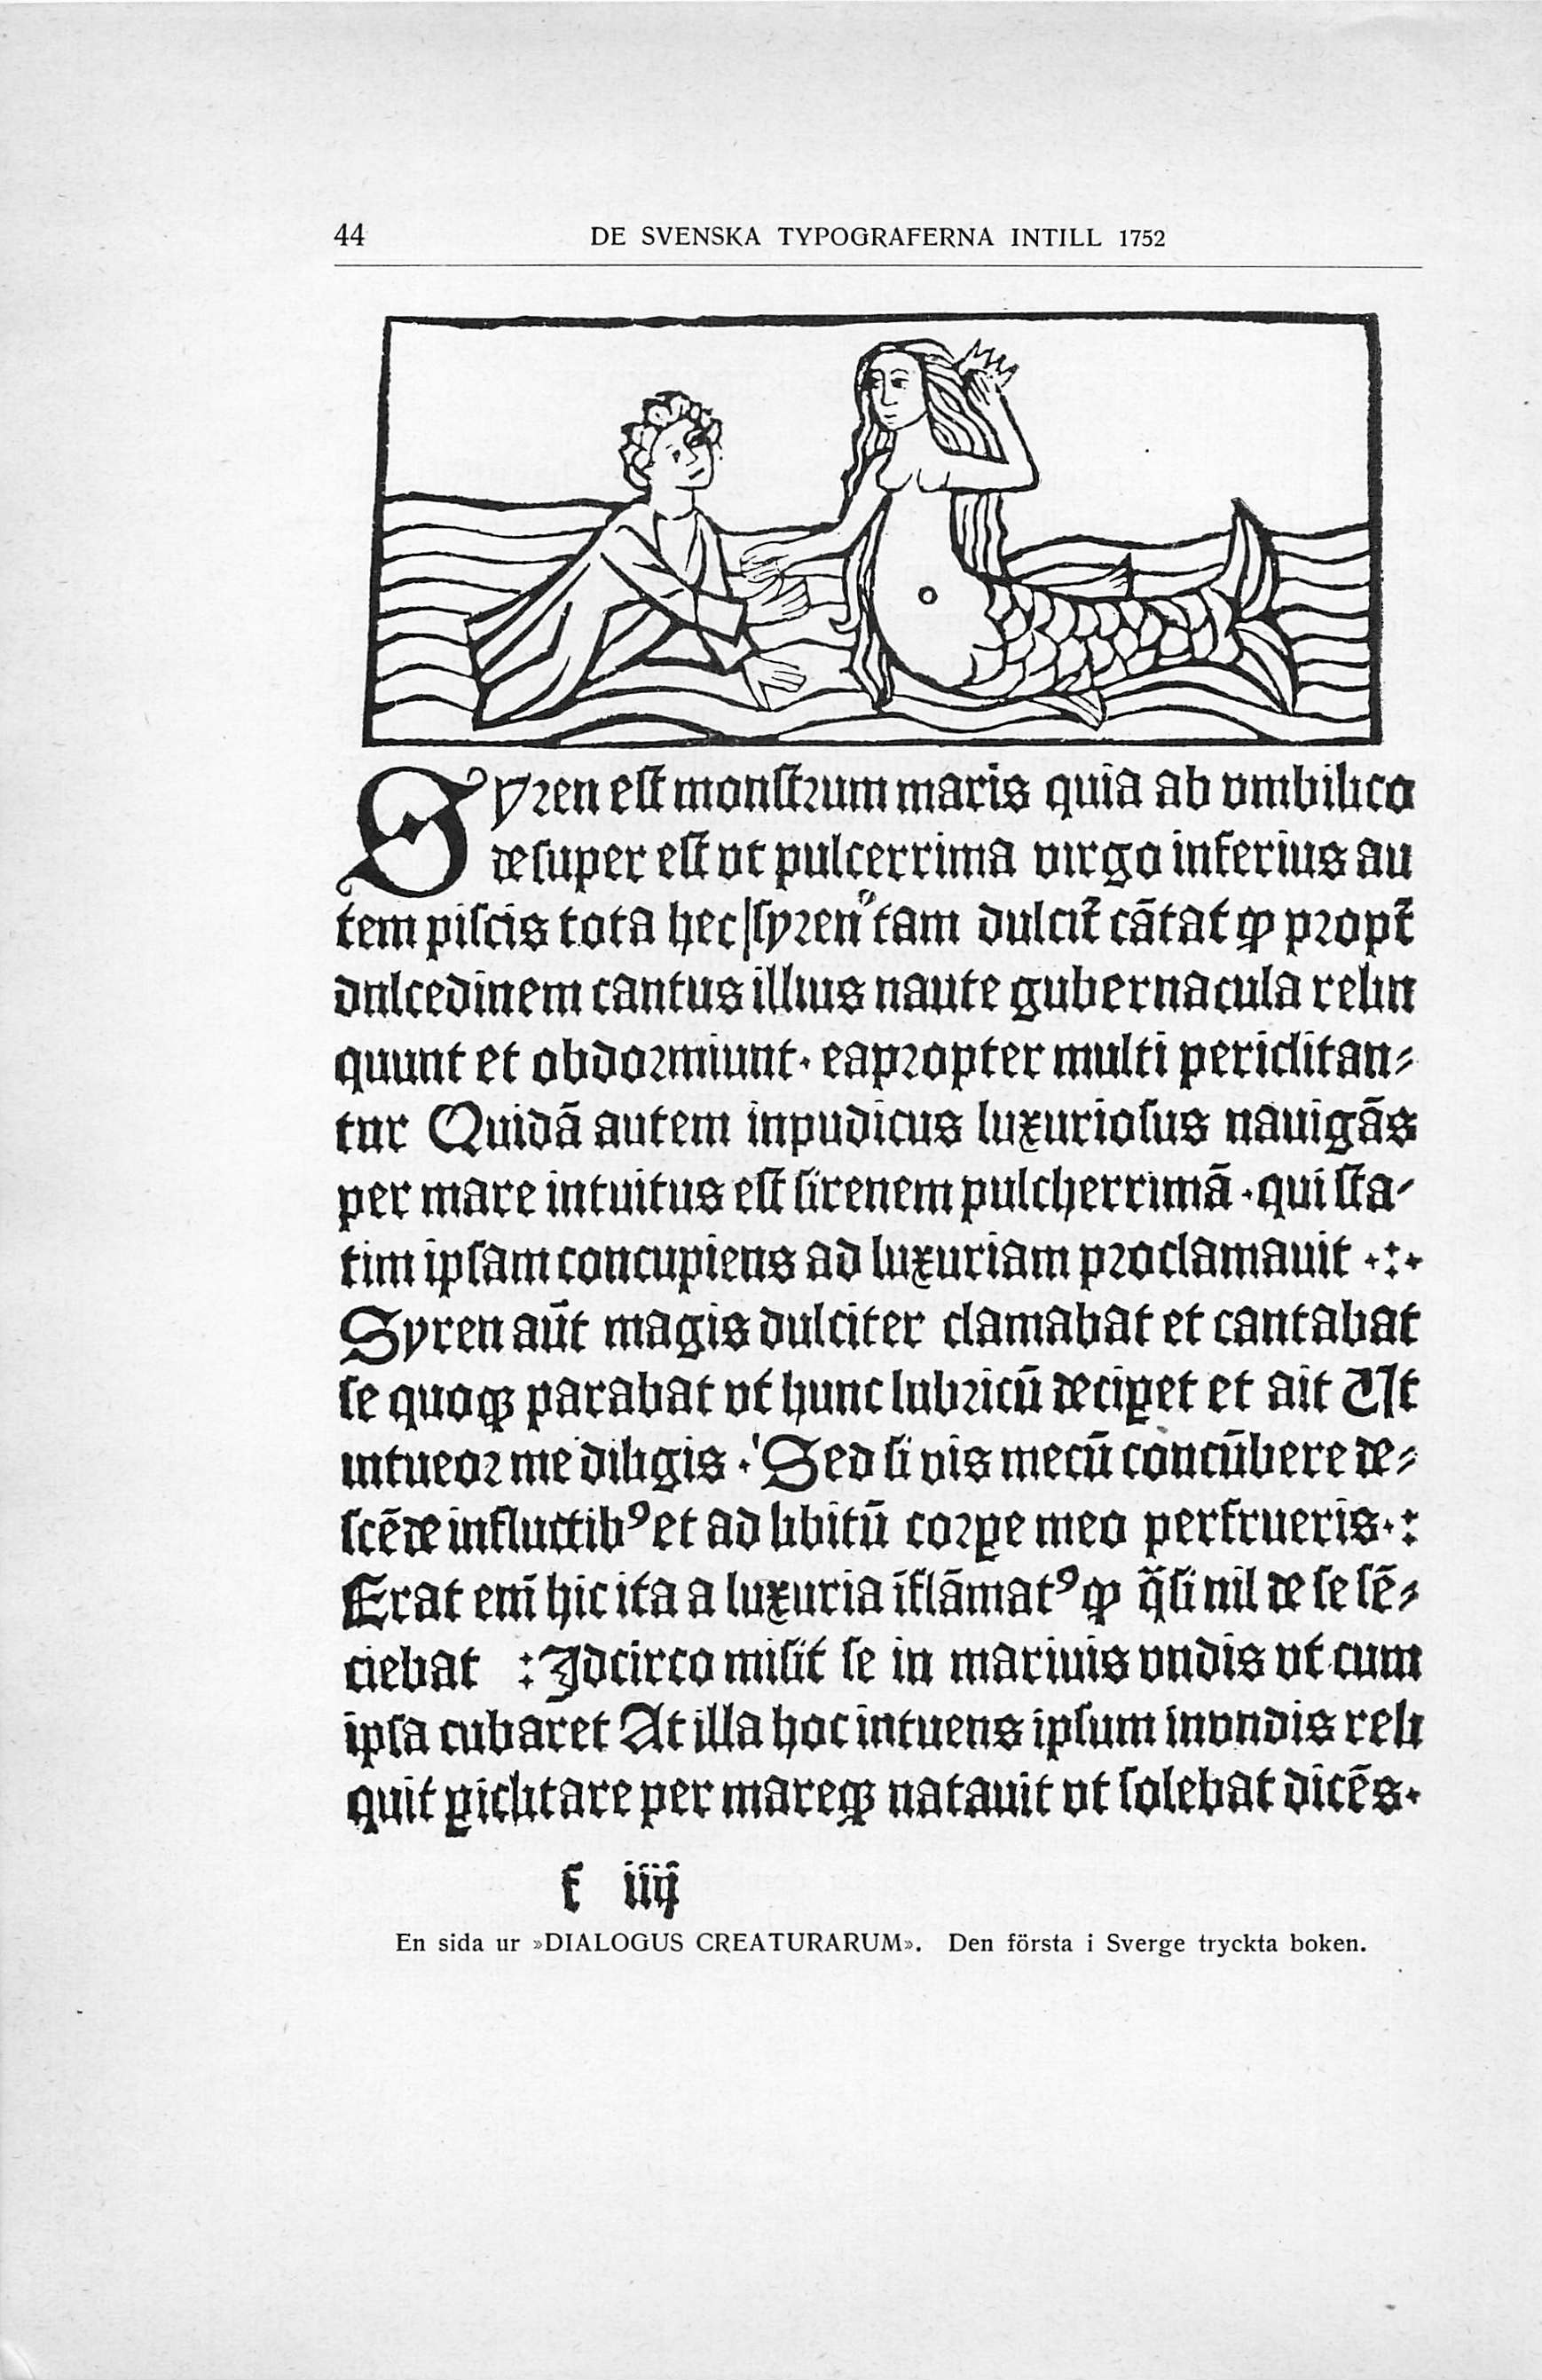 44 DE SVENSKA TYPOGRAFERNA INTILL 1752
Syren est monstrum maris quia ab vmbilico
desuper est vt pulcerrima virgo inferius au
tem piscis tota hec syren tam dulcit̄ cātat ꝙ propt̄
dnlcedinem cantus illius naute gubernacula relin
quunt et obdormiunt. eapropter multi periclitan⸗
tur Quidā autem inpudicus luxuriosus nauigās
per mare intuitus est sirenem pulcherrimā . qui sta-
tim ipsam concupiens ad luxuriam proclamauit .:.
Syren aūt magis dulciter clamabat et cantabat
se quoqꝫ parabat vt hunc lubricū deciꝑet et ait Ut
intueor me diligis . Sed si vis mecū concūbere de⸗
scēde in fluctibꝰ et ad libitū corꝑe meo perfrueris.:
Erat eni̅ hic ita a luxuria īflāmatꝰ ꝙ q̄si nil de se sē⸗
ciebat : Jdcirco misit se in marinis vndis vt cum
ipsa cubaret At illa hoc intuens ipsum in vndis reli
quit ꝑiclitare per mareqꝫ natauit vt solebat dicēs.
f iiij
En sida ur »DIALOGUS CREATURARUM». Den första i Sverge tryckta boken.